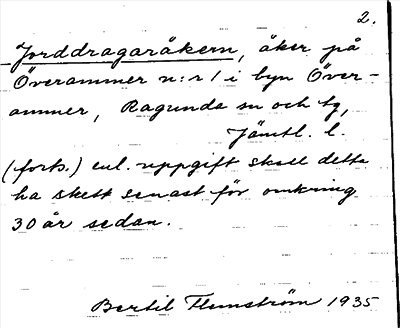 2.
Jorddragaråkern, åker på
Överammer n:r 1 i byn Över-
ammer, Ragunda sn och tg,
Jämtl. l.
(forts.) enl. uppgift skall detta
ha skett senast för omkring
30 år sedan.
Bertil Flemström 1935